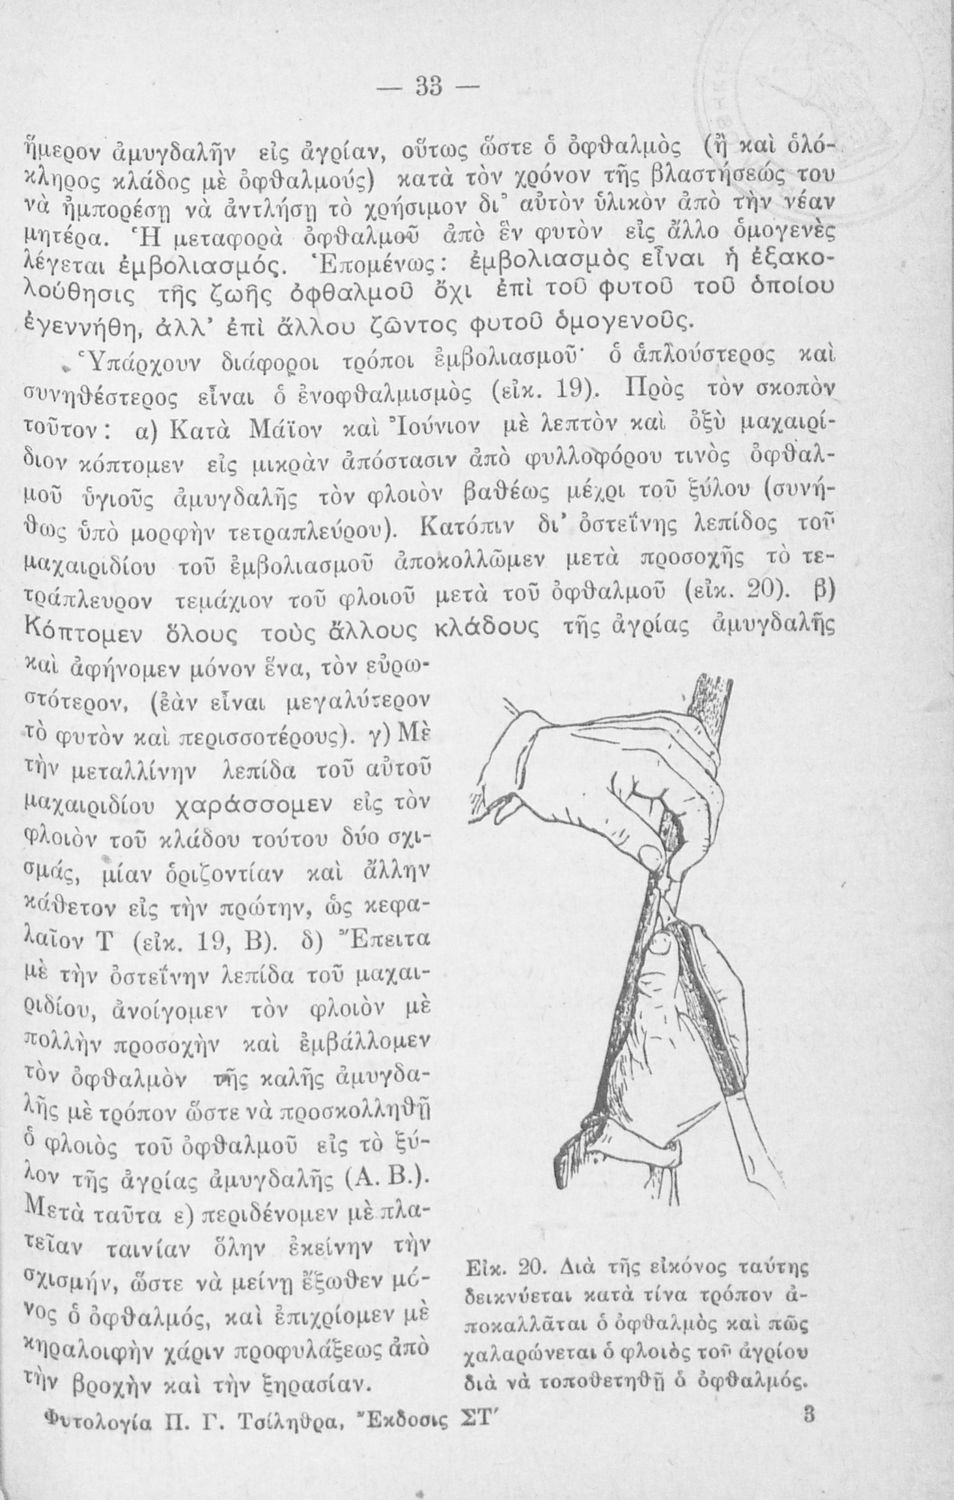 — 33 —
ἥμερον ἀμυγδαλῆν εἰς ἀγρίαν, οὕτως ὥστε ὁ ὀφθαλμὸς (ἢ καὶ ὁλό-
κληρος κλάδος μὲ ὀφθαλμούς) κατὰ τὸν χρόνον τῆς βλαστήσεώς του
νὰ ἠμπορέσῃ νὰ ἀντλήσῃ τὸ χρήσιμον δι' αὐτὸν ὑλικὸν ἀπὸ τὴν νέαν
μητέρα. Ἡ μεταφορὰ ὀφθαλμοῦ ἀπὸ ἓν φυτὸν εἰς ἄλλο ὁμογενὲς
λέγεται ἐμβολιασμός. Ἑπομένως: ἐμβολιασμὸς εἶναι ἡ ἐξακο-
λούθησις τῆς ζωῆς ὀφθαλμοῦ ὄχι ἐπὶ τοῦ φυτοῦ τοῦ ὁποίου
ἐγεννήθη, ἀλλ' ἐπὶ ἄλλου ζῶντος φυτοῦ ὁμογενοῦς.
Ὑπάρχουν διάφοροι τρόποι ἐμβολιασμοῦ· ὁ ἁπλούστερος καὶ
συνηθέστερος εἶναι ὁ ἐνοφθαλμισμὸς (εἰκ. 19). Πρὸς τὸν σκοπὸν
τοῦτον: α) Κατὰ Μάϊον καὶ Ἰούνιον μὲ λεπτὸν καὶ ὀξὺ μαχαιρί-
διον κόπτομεν εἰς μικρὰν ἀπόστασιν ἀπὸ φυλλοφόρου τινὸς ὀφθαλ-
μοῦ ὑγιοῦς ἀμυγδαλῆς τὸν φλοιὸν βαθέως μέχρι τοῦ ξύλου (συνή-
θως ὑπὸ μορφὴν τετραπλεύρου). Κατόπιν δι' ὀστεΐνης λεπίδος τοῦ
μαχαιριδίου τοῦ ἐμβολιασμοῦ ἀποκολλῶμεν μετὰ προσοχῆς τὸ τε-
τράπλευρον τεμάχιον τοῦ φλοιοῦ μετὰ τοῦ ὀφθαλμοῦ (εἰκ. 20). β)
Κόπτομεν ὅλους τοὺς ἄλλους κλάδους τῆς ἀγρίας ἀμυγδαλῆς
καὶ ἀφήνομεν μόνον ἕνα, τὸν εὐρω-
στότερον, (ἐὰν εἶναι μεγαλύτερον
τὸ φυτὸν καὶ περισσοτέρους). γ) Μὲ
τὴν μεταλλίνην λεπίδα τοῦ αὐτοῦ
μαχαιριδίου χαράσσομεν εἰς τὸν
φλοιὸν τοῦ κλάδου τούτου δύο σχι-
σμάς, μίαν ὁριζοντίαν καὶ ἄλλην
κάθετον εἰς τὴν πρώτην, ὡς κεφα-
λαῖον Τ (εἰκ. 19, Β). δ) Ἔπειτα
μὲ τὴν ὀστεΐνην λεπίδα τοῦ μαχαι-
ριδίου, ἀνοίγομεν τὸν φλοιὸν μὲ
πολλὴν προσοχὴν καὶ ἐμβάλλομεν
τὸν ὀφθαλμὸν τῆς καλῆς ἀμυγδα-
λῆς μὲ τρόπον ὥστε νὰ προσκολληθῇ
ὁ φλοιὸς τοῦ ὀφθαλμοῦ εἰς τὸ ξύ-
λον τῆς ἀγρίας ἀμυγδαλῆς (Α. Β.).
Μετὰ ταῦτα ε) περιδένομεν μὲ πλα-
τεῖαν ταινίαν ὅλην ἐκείνην τὴν
σχισμήν, ὥστε νὰ μείνῃ ἔξωθεν μό-
νος ὁ ὀφθαλμός, καὶ ἐπιχρίομεν μὲ
κηραλοιφὴν χάριν προφυλάξεως ἀπὸ
τὴν βροχὴν καὶ τὴν ξηρασίαν.
Εἰκ. 20. Διὰ τῆς εἰκόνος ταύτης
δεικνύεται κατὰ τίνα τρόπον ἀ-
ποκαλλᾶται ὁ ὀφθαλμὸς καὶ πῶς
χαλαρώνεται ὁ φλοιὸς τοῦ ἀγρίου
διὰ νὰ τοποθετηθῇ ὁ ὀφθαλμός.
Φυτολογία Π. Γ. Τσίληθρα, Ἔκδοσις ΣΤ′ 3